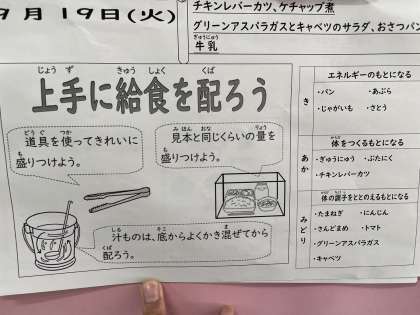 9月19日(火)
チキンレバーカツ、ケチャップ煮
グリーンアスパラガスとキャベツのサラダ、おさつパン
牛乳
上手に給食を配ろう
道具を使ってきれいに
盛りつけよう。
見本と同じくらいの量を
盛りつけよう。
汁ものは、底からよくかき混ぜてから
配ろう。
き
エネルギーのもとになる
・パン ・あぶら
・じゃがいも ・さとう
あか
体をつくるもとになる
・ぎゅうにゅう ・ぶたにく
・チキンレバーカツ
みどり
体の調子をととのえるもとになる
・たまねぎ ・にんじん
・さんどまめ ・トマト
・グリーンアスパラガス
・キャベツ